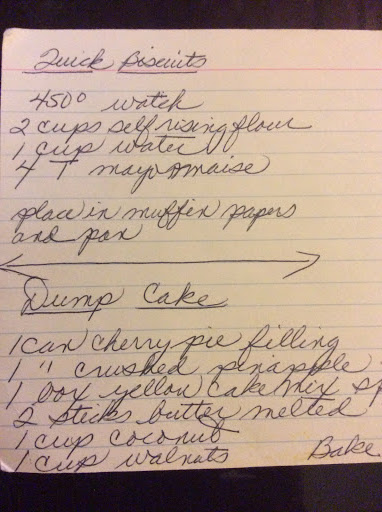 Quick Biscuits
450° watch
2 cups self rising flour
1 cup water
4 T mayonnaise
place in muffin papers
and pan
Dump Cake
1 can cherry pie filling
1 " crushed pinapple
1 box yellow cake mix
2 sticks butter melted
1 cup coconut
1 cup walnuts Bake